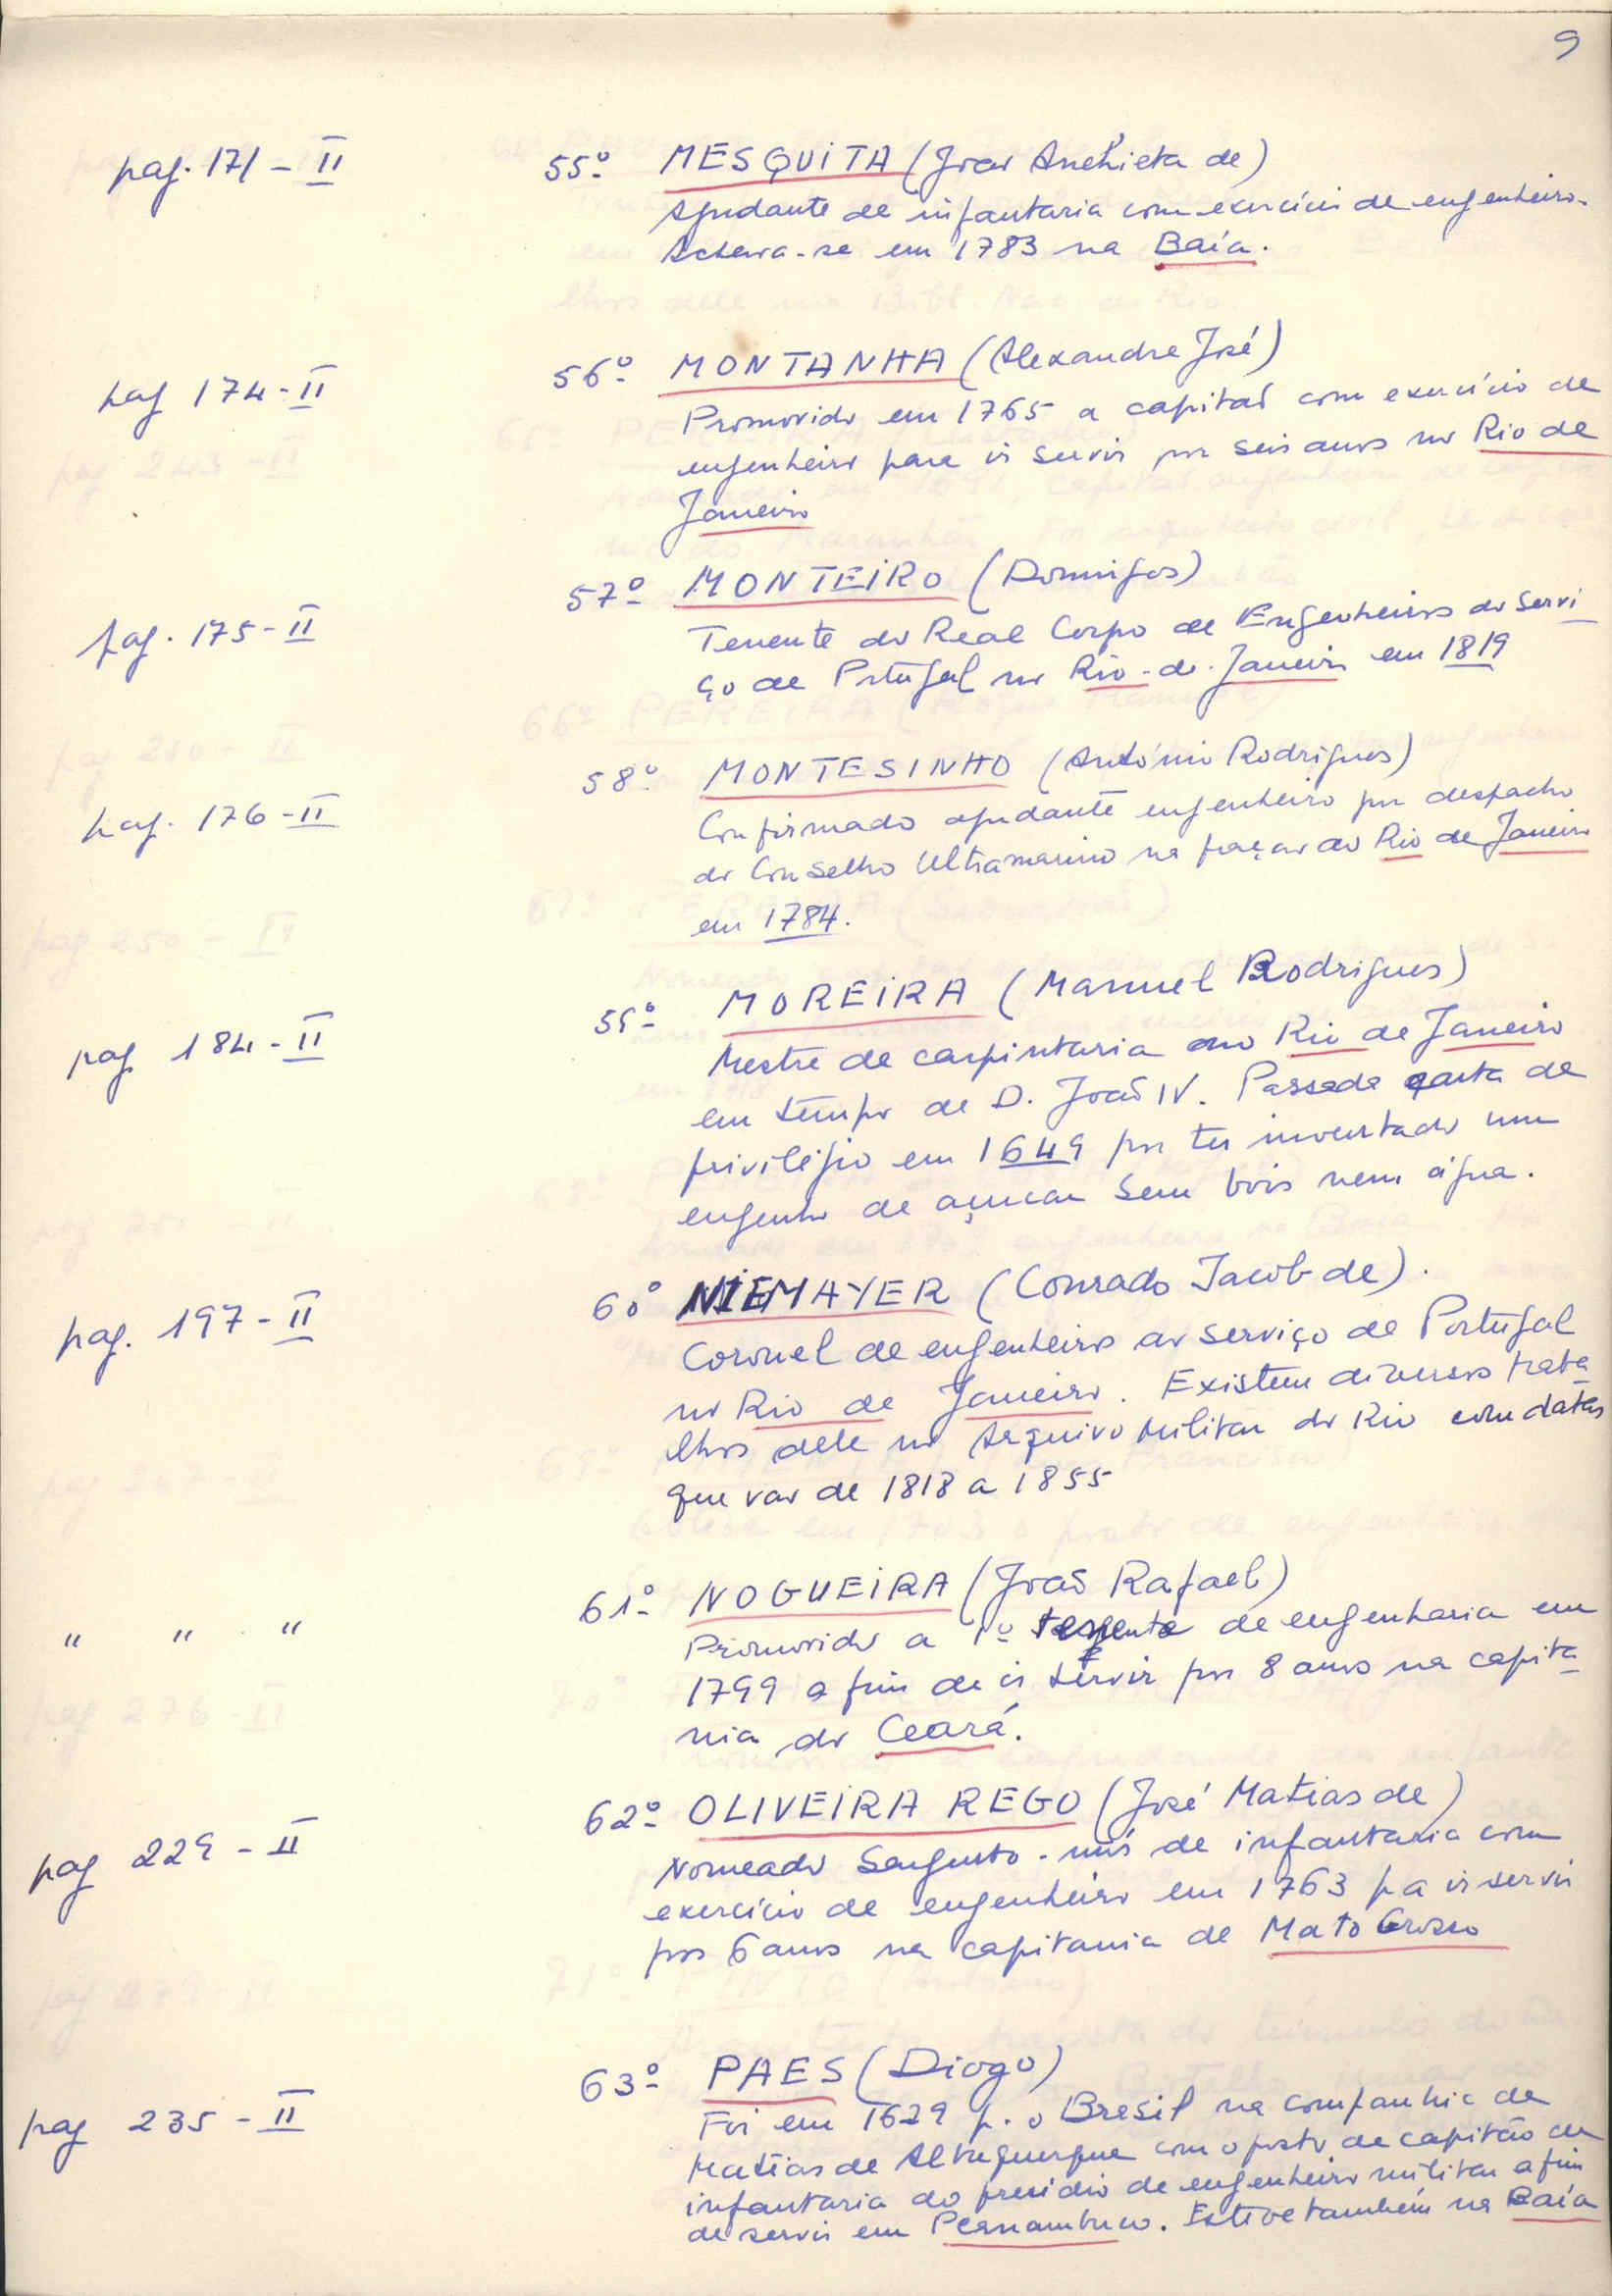 9
pag. 171 - II
55º MESQUITA (João Anchieta de)
Ajudante de infantaria com exercício de engenheiro.
Achava-se em 1783 na Baía.
pag 174 - II
56º MONTANHA (Alexandre José)
Promovido em 1765 a capitaõ com exercício de
engenheiro para ir servir por seis anos no Rio de
Janeiro
pag. 175 - II
57º MONTEIRO (Domingos)
Tenente do Real Corpo de Engenheiros do Servi
ço de Portugal no Rio-de-Janeiro em 1819
pag. 176 - II
58º MONTESINHO (António Rodrigues)
Confirmado ajudante engenheiro por despacho
do Conselho Ultramarino na praça do Rio de Janeiro
em 1784.
pag 184 - II
59º MOREIRA (Manuel Rodrigues)
Mestre de carpintaria no Rio de Janeiro
em tempo de D. Joaõ IV. Passada carta de
privilégio em 1649 por ter inventado um
engenho de açucar sem bois nem água.
pag. 197 - II
60º NIEMAYER (Conrado Jacob de).
Coronel de engenheiros ao serviço de Portugal
no Rio de Janeiro. Existem diversos traba
lhos dele no Arquivo Militar do Rio com datas
que vao de 1818 a 1855
" " "
61º NOGUEIRA (Joaõ Rafael)
Promovido a 1º tenente de engenharia em
1799 a fim de ir servir por 8 anos na capita
nia do Ceará.
pag 229 - II
62º OLIVEIRA REGO (José Matias de)
Nomeado Sargento-mór de infantaria com
exercício de engenheiro em 1763 pa ir servir
por 6 anos na capitania de Mato Grosso
pag 235 - II
63º PAES (Diogo)
Foi em 1629 p. o Brasil na companhia de
Matias de Albuquerque com o posto de capitão de
infantaria do presidio de engenheiro militar a fim
de servir em Pernambuco. Esteve também na Baía